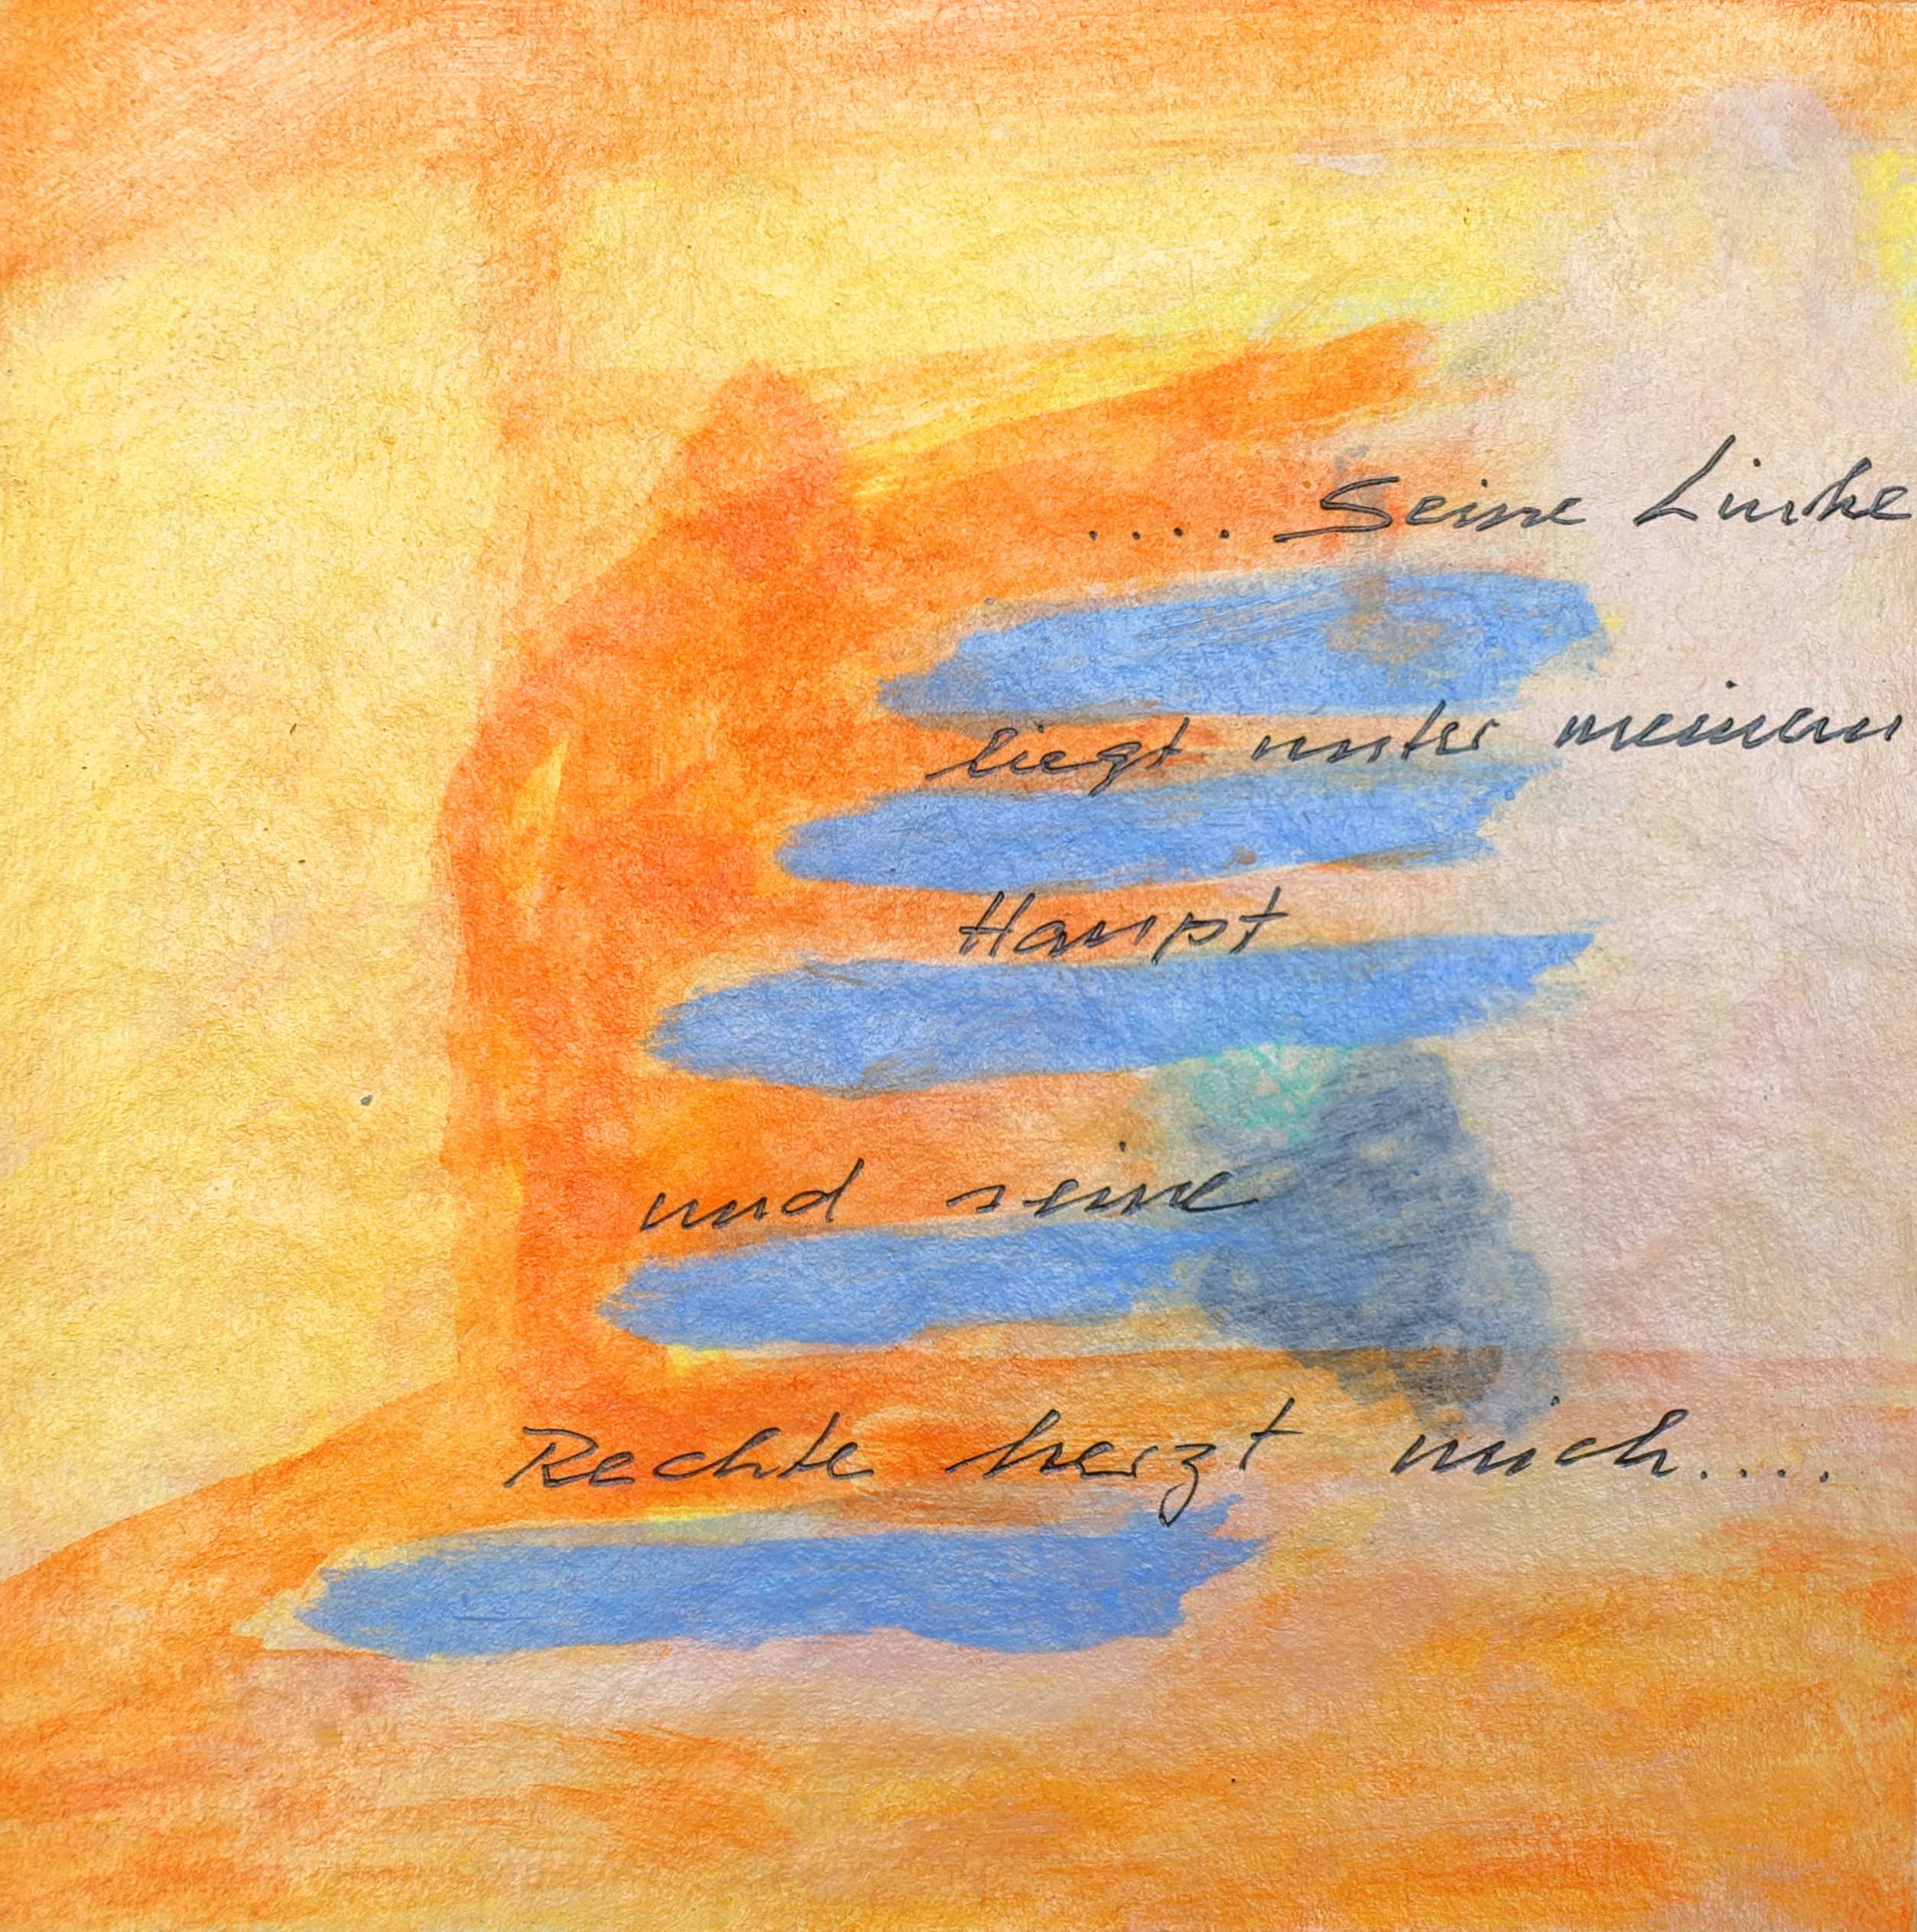 ..... Seine Linke
liegt unter meinem
Haupt
und seine
Rechte herzt mich.....